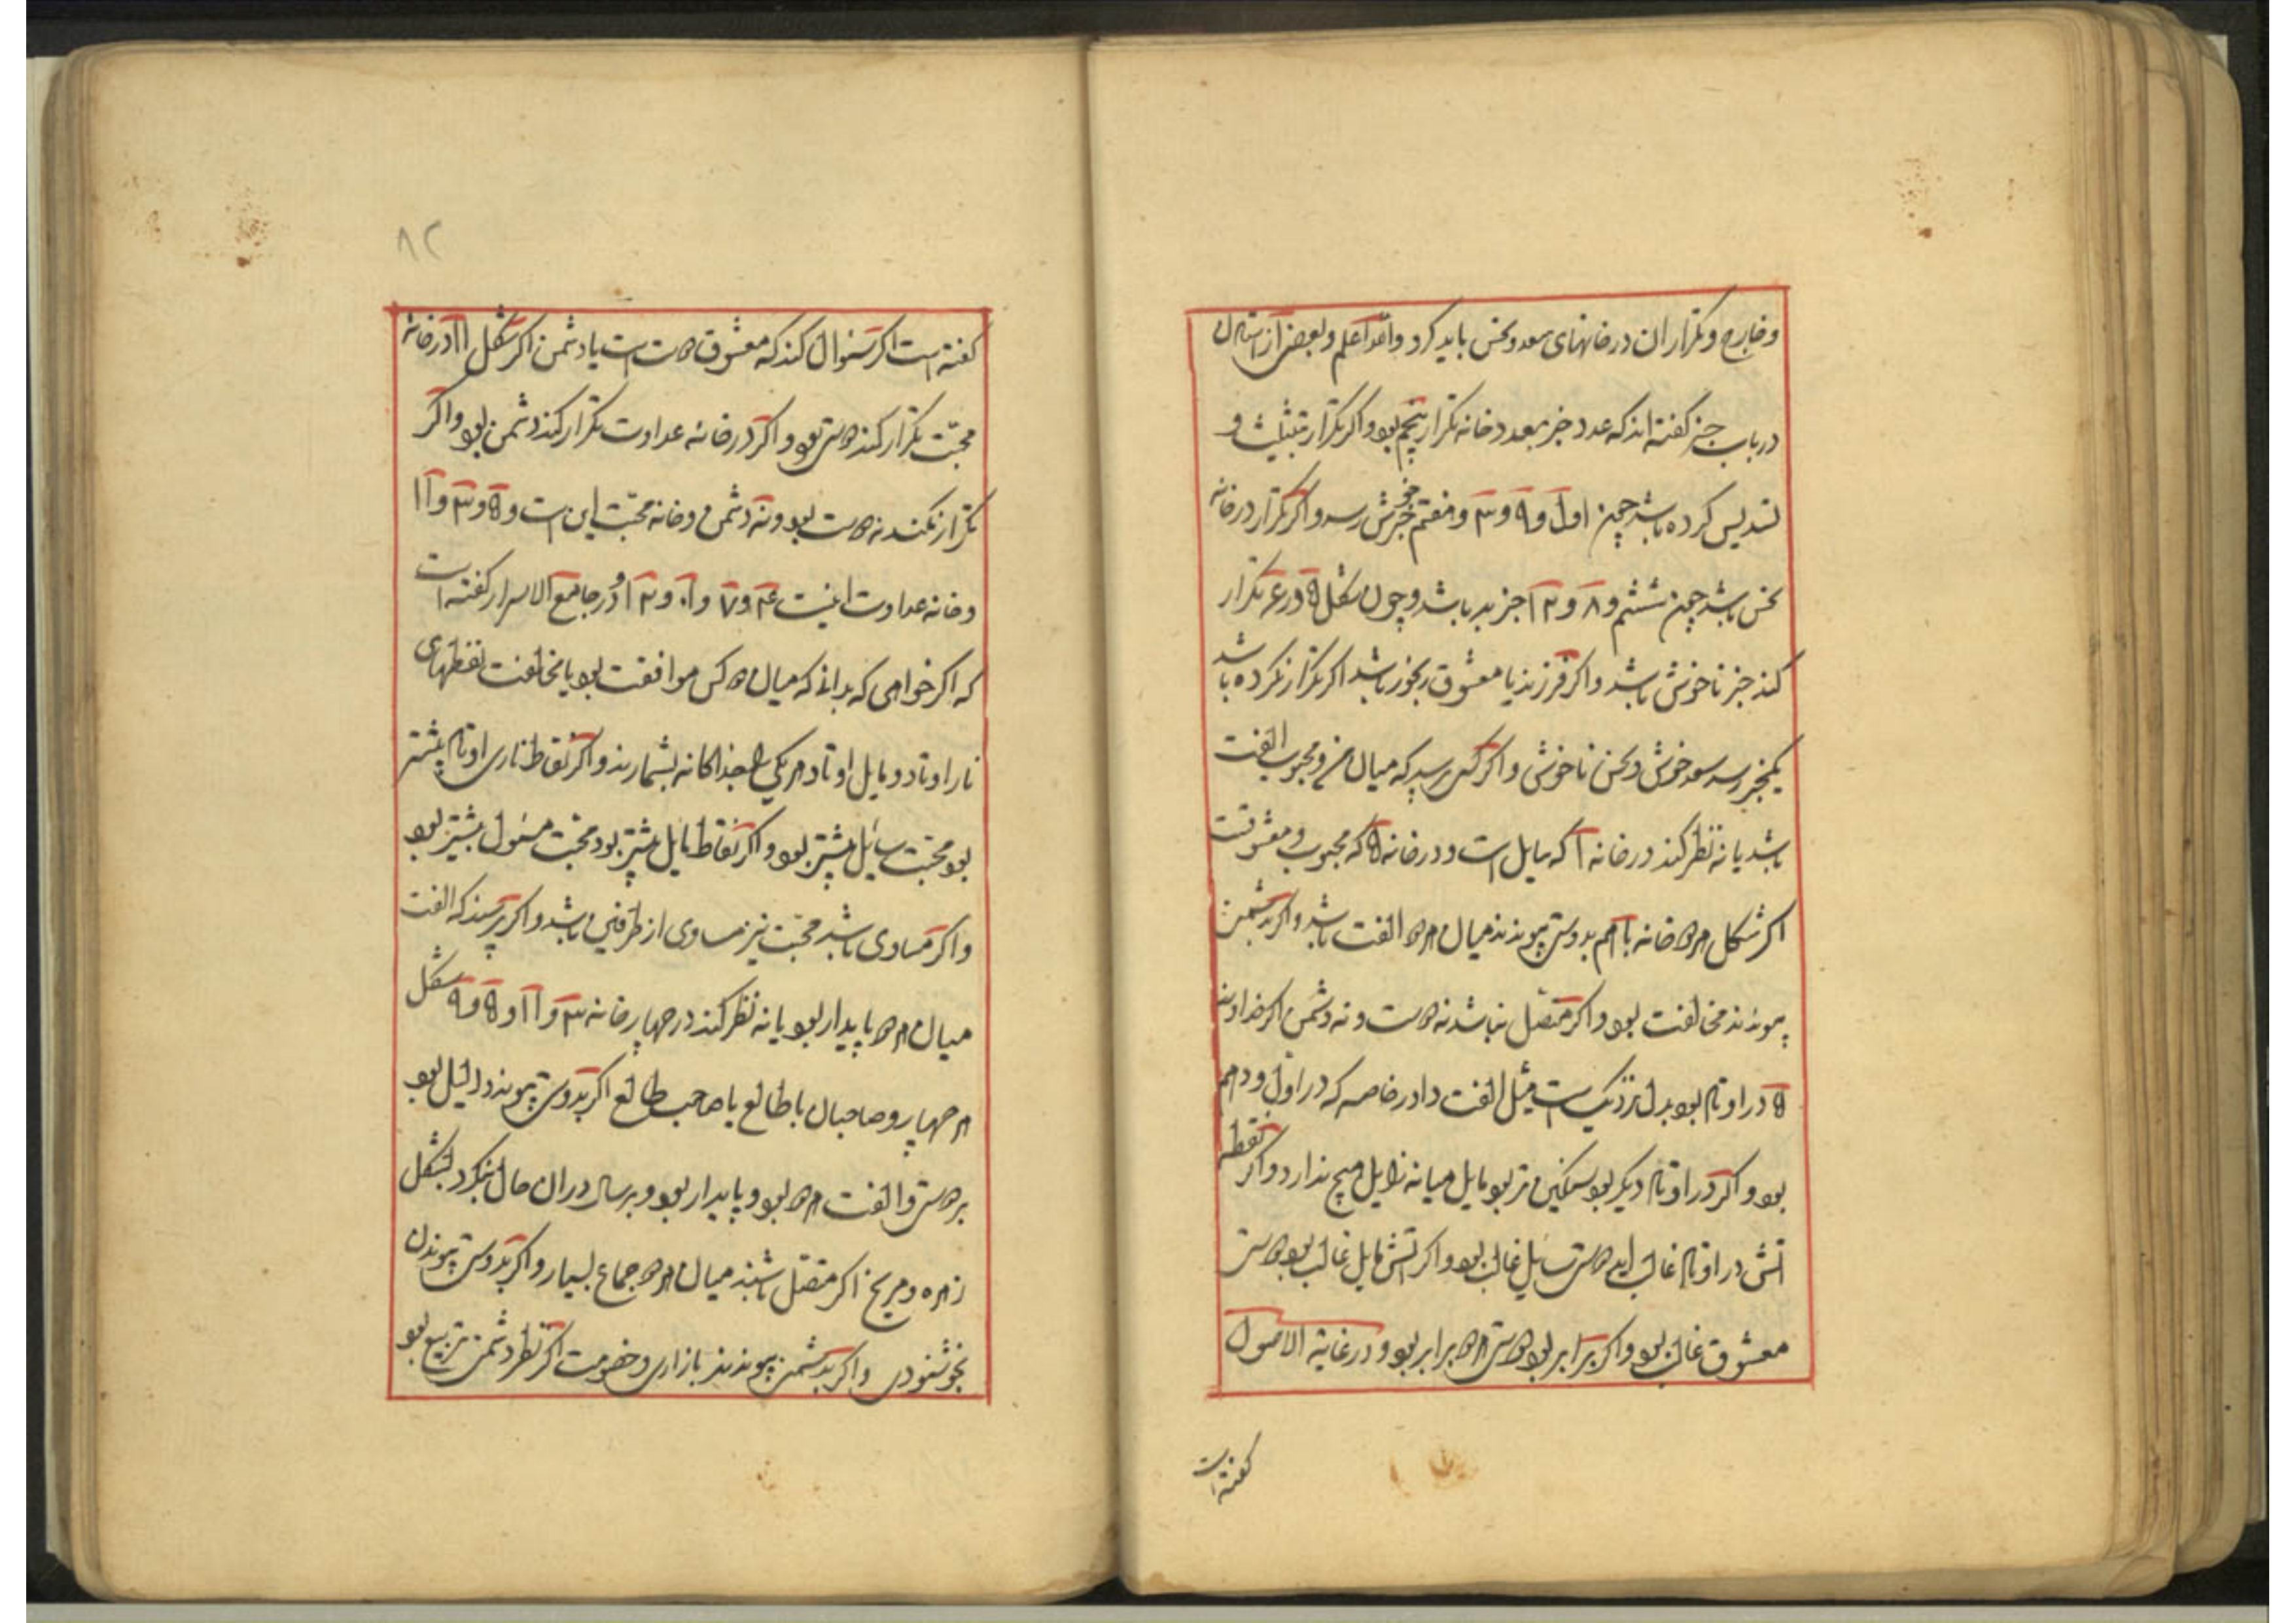 وخارج و تکرار ان در خانهای سعد و نحس باید کرد والله اعلم و بعضی از استادان
در باب خبر گفته اند که عدد خبر بعدد خانه تکرار پنجم بود و اکر تکرار بتثلیث و
تسدیس کرده باشد چون اول و ۹ و ۳ و هفتم خبر خوش رسد و اکر تکرار در خانه
نحس باشد چون ششم و ۸ و ۱۲ خبر بد باشد و چون شکل ۵ در ۶ تکرار
کند خبر ناخوش باشد و اکر فرزند یا معشوق رنجور باشد اکر تکرار نکرده باشد
سعد خوش و نحس ناخوش و اکر کسی پرسد که میان من و محبوب الفت
باشد یا نه نظر کند در خانه ۱ که سایل است و در خانه ۵ که محبوب و معشوقست
اکر شکل هر دو خانه با هم بدوستی پیوندند میان هر دو الفت باشد و اکر بدشمنی
پیوندند مخالفت بود و اکر متصل نباشد نه دوست و نه دشمن اکر خداوند
۵ در اوتاد بود بدل نزدیک است میل الفت دارد خاصه که در اول و دهم
بود و اکر در اوتاد دیکر بود مسکین تر بود مایل میانه زایل هیچ ندارد و اکر نقطه
اتش در اوتاد غالب اید دوستی سایل غالب بود و اکر اتش مایل غالب بود دوستی
معشوق غالب بود و اکر برابر بود دوستی هر دو برابر بود و در غایة الاصول
کفته است
۸۲
کفته است اکر سئوال کند که معشوق دوست است یا دشمن اکر شکل ۱۱ در خانه
محبّت تکرار کند دوستی بود و اکر در خانه عداوت تکرار کند دشمن بود و اکر
تکرار نکند نه دوست بود و نه دشمن و خانه محبّت این است ۵ و ۳ و ۱۱
و خانه عداوت اینست ۴ و ۷ و ۱۰ و ۱۲ و در جامع الاسرار کفته است
که اکر خواهی که بدانی که میان دو کس موافقت بود یا مخالفت نقطهای
نار اوتاد و مایل اوتاد هر یکی را جداکانه بشمارند و اکر نقاط ناری اوتاد بیشتر
بود محبّت سایل بیشتر بود و اکر نقاط مایل بیشتر بود محبّت مسئول بیشتر بود
و اکر مساوی باشد محبّت نیز مساوی از طرفین باشد و اکر پرسند که الفت
میان هر دو پایدار بود یا نه نظر کند در چهار خانه ۳ و ۱۱ و ۵ و ۹ شکل
هر چهار و صاحبان با طالع یا صاحب طالع اکر بدوستی پیوندد دلیل بود
بر دوستی و الفت هر دو بود و پایدار بود و در ان حال بنکرد بشکل
زهره و مریخ اکر متصل باشند میان هر دو جماع بسیار و اکر بدوستی پیوندد
بخوشنودی و اکر بدشمنی پیوندند بازاری و خصومت اکر نظر دشمنی تربیع بود